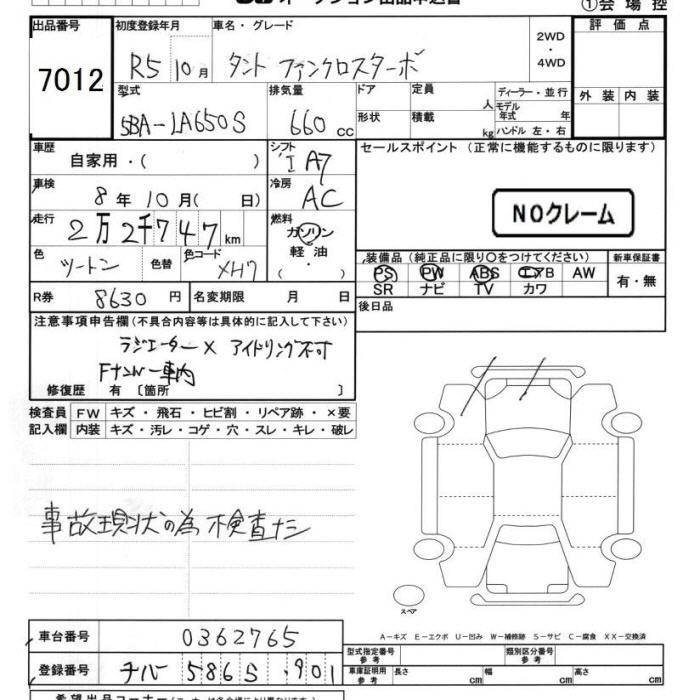 オークション出品申込書
①会場控
出品番号 7012
初度登録年月 R5 10月
車名・グレード タント ファンクロスターボ
2WD・4WD
評価点
外装 内装
型式 5BA-LA650S
排気量 660 cc
ドア
形状
定員 人
積載 kg
ディーラー・並行
モデル年式 年
ハンドル 左・右
車歴 自家用・( )
シフト I A7
車検 8年10月( 日)
冷房 AC
走行 2万2千747km
燃料 ガソリン 軽油 ( ・ )
色 ツートン
色替
色コード XH7
R券 8630円
名変期限 月 日
セールスポイント (正常に機能するものに限ります)
NOクレーム
装備品 (純正品に限り○をつけてください)
PS PW ABS エアB AW
SR ナビ TV カワ
新車保証書
有・無
後日品
注意事項申告欄 (不具合内容等は具体的に記入して下さい)
ラジエーター× アイドリング不可
Fナンバー車内
修復歴 有 〔箇所 〕
検査員記入欄
FW キズ・飛石・ヒビ割・リペア跡・×要
内装 キズ・汚レ・コゲ・穴・スレ・キレ・破レ
事故現状の為検査ナシ
スペア
A-キズ E-エクボ U-凹み W-補修跡 S-サビ C-腐食 XX-交換済
車台番号 0362765
登録番号 チバ 586 S . 901
型式指定番号 参考
類別区分番号 参考
車庫証明用 参考 長さ cm 幅 cm 高さ cm
希望出品コーナー